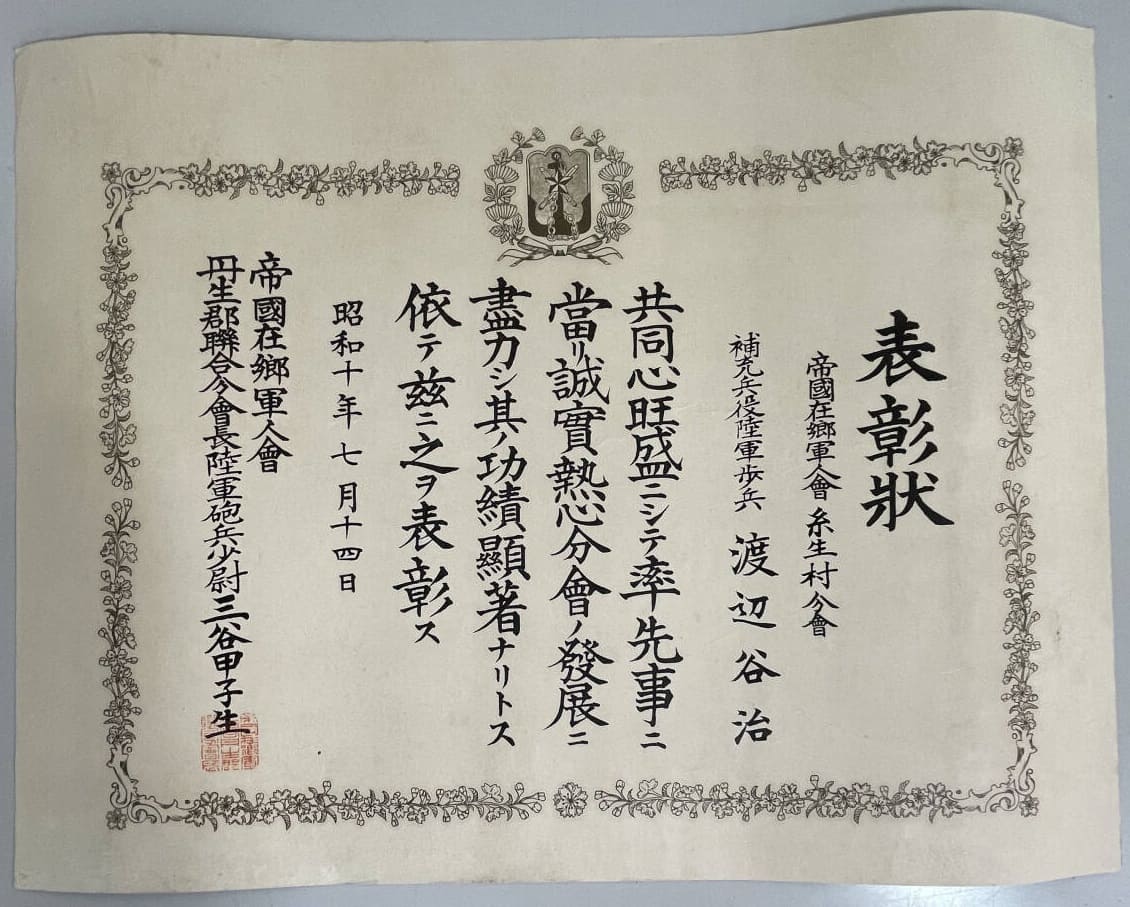 表彰狀
帝國在鄉軍人會糸生村分會
補充兵役陸軍歩兵 渡辺谷治
共同心旺盛ニシテ率先事ニ
當リ誠實熱心分會ノ發展ニ
盡力シ其ノ功績顯著ナリトス
依テ茲ニ之ヲ表彰ス
昭和十年七月十四日
帝國在鄉軍人會
丹生郡聯合分會長陸軍砲兵少尉三谷甲子生